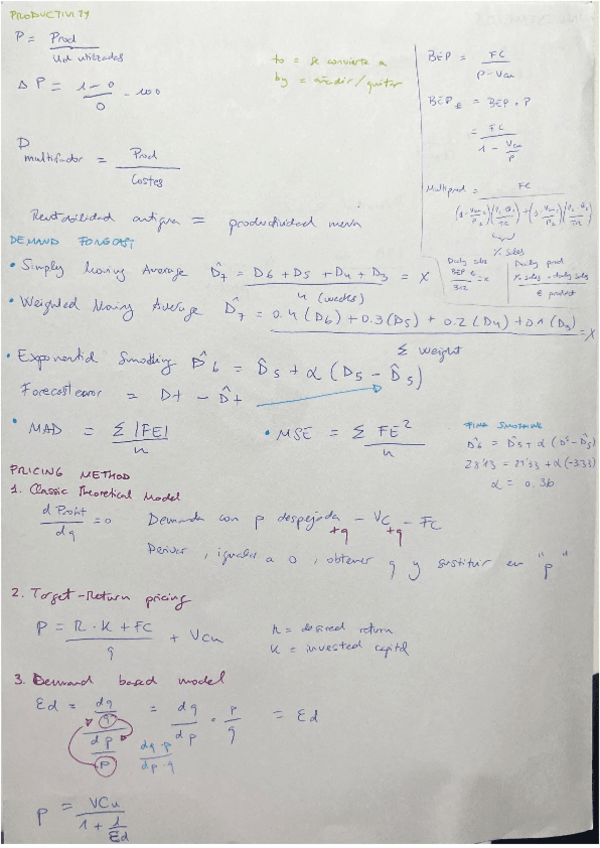 PRODUCTIVITY
P = Prod / Ud utilizadas
Δ P = 1-0 / 0 · 100
to = se convierte a
by = añadir/quitar
BEP = FC / P - Vcu
BEP € = BEP · P
= FC / 1 - Vcu/P
P multifactor = Prod / Costes
Multiprod = FC
% sales
Rentabilidad antigua = productividad nueva
Daily sales
BEP € / 312 = x
Daily prod
% sales · daily sales / € product
DEMAND FORECAST
• Simply Moving Average D̂7 = D6 + D5 + D4 + D3 / 4 (weeks) = X
• Weighted Moving Average D̂7 = 0.4 (D6) + 0.3 (D5) + 0.2 (D4) + 0.1 (D3) / Σ Weight = X
• Exponential Smothing D̂6 = D̂5 + α (D5 - D̂5)
Forecast error = Dt - D̂t
• MAD = Σ |FE| / n
• MSE = Σ FE² / n
FIND SMOOTHING
D̂6 = D̂5 + α (D5 - D̂5)
α = 0.36
PRICING METHOD
1. Classic Theoretical Model
d Profit / dq = 0 Demanda con p despejada - VC - FC
*q *q
Derivar, igualar a 0, obtener q y sustituir en "p"
2. Target-Return pricing
P = R · K + FC / q + Vcu
R = desired return
K = invested capital
3. Demand based model
Ed = dq/q / dp/p = dq/dp · p/q = Ed
dq · p / dp · q
P = VCu / 1 + 1/Ed